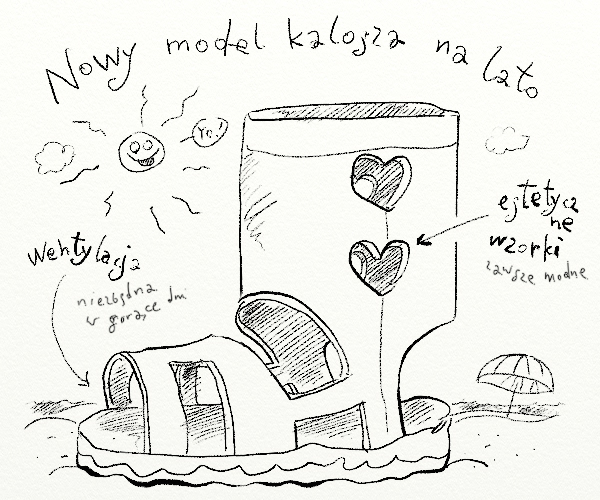 Nowy model kalosza na lato
Yo!
estetycz
ne
wzorki
zawsze modne
wentylacja
niezbędna
w gorące dni